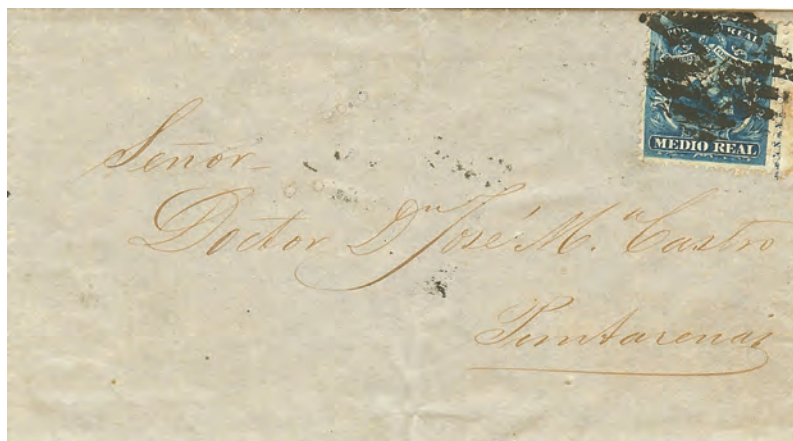 MEDIO REAL
Señor
Doctor D.ⁿ José M.ª Castro
Puntarenas